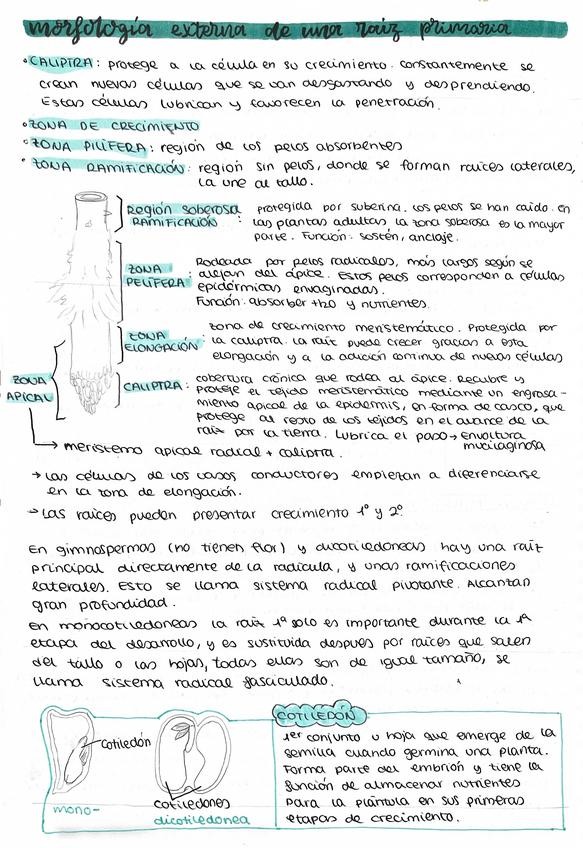 morfología externa de una raíz primaria
• CALIPTRA: protege a la célula en su crecimiento. constantemente se
crean nuevas células que se van desgastando y desprendiendo.
Estas células lubrican y favorecen la penetración.
• ZONA DE CRECIMIENTO
• ZONA PILÍFERA: región de los pelos absorbentes
• ZONA RAMIFICACIÓN: región sin pelos, donde se forman raíces laterales,
la une al tallo.
Región soberosa RAMIFICACIÓN: protegida por suberina. los pelos se han caído. en
las plantas adultas la zona soberosa es la mayor
parte. Función: sostén, anclaje.
ZONA PELÍFERA: Rodeada por pelos radicales, más largos según se
alejan del ápice. Estos pelos corresponden a células
epidérmicas envaginadas.
Función: absorber H2O y nutrientes.
ZONA ELONGACIÓN: zona de crecimiento meristemático. Protegida por
la caliptra. la raíz puede crecer gracias a esta
elongación y a la adición continua de nuevas células
ZONA APICAL
CALIPTRA: cobertura crónica que rodea al ápice. Recubre y
protege el tejido meristemático mediante un engrosa-
miento apical de la epidermis, en forma de casco, que
protege al resto de los tejidos en el avance de la
raíz por la tierra. Lubrica el paso → envoltura
mucilaginosa
→ meristemo apical radical + caliptra.
→ Las células de los vasos conductores empiezan a diferenciarse
en la zona de elongación.
→ Las raíces pueden presentar crecimiento 1º y 2º.
En gimnospermas (no tienen flor) y dicotiledóneas hay una raíz
principal directamente de la radícula, y unas ramificaciones
laterales. Esto se llama sistema radical pivotante. Alcanzan
gran profundidad.
En monocotiledóneas la raíz 1ª solo es importante durante la 1ª
etapa del desarrollo, y es sustituida después por raíces que salen
del tallo o las hojas, todas ellas son de igual tamaño, se
llama sistema radical fasciculado.
cotiledón
mono-
cotiledones
dicotiledonea
COTILEDÓN
1er conjunto u hoja que emerge de la
semilla cuando germina una planta.
Forma parte del embrión y tiene la
función de almacenar nutrientes
para la plántula en sus primeras
etapas de crecimiento.